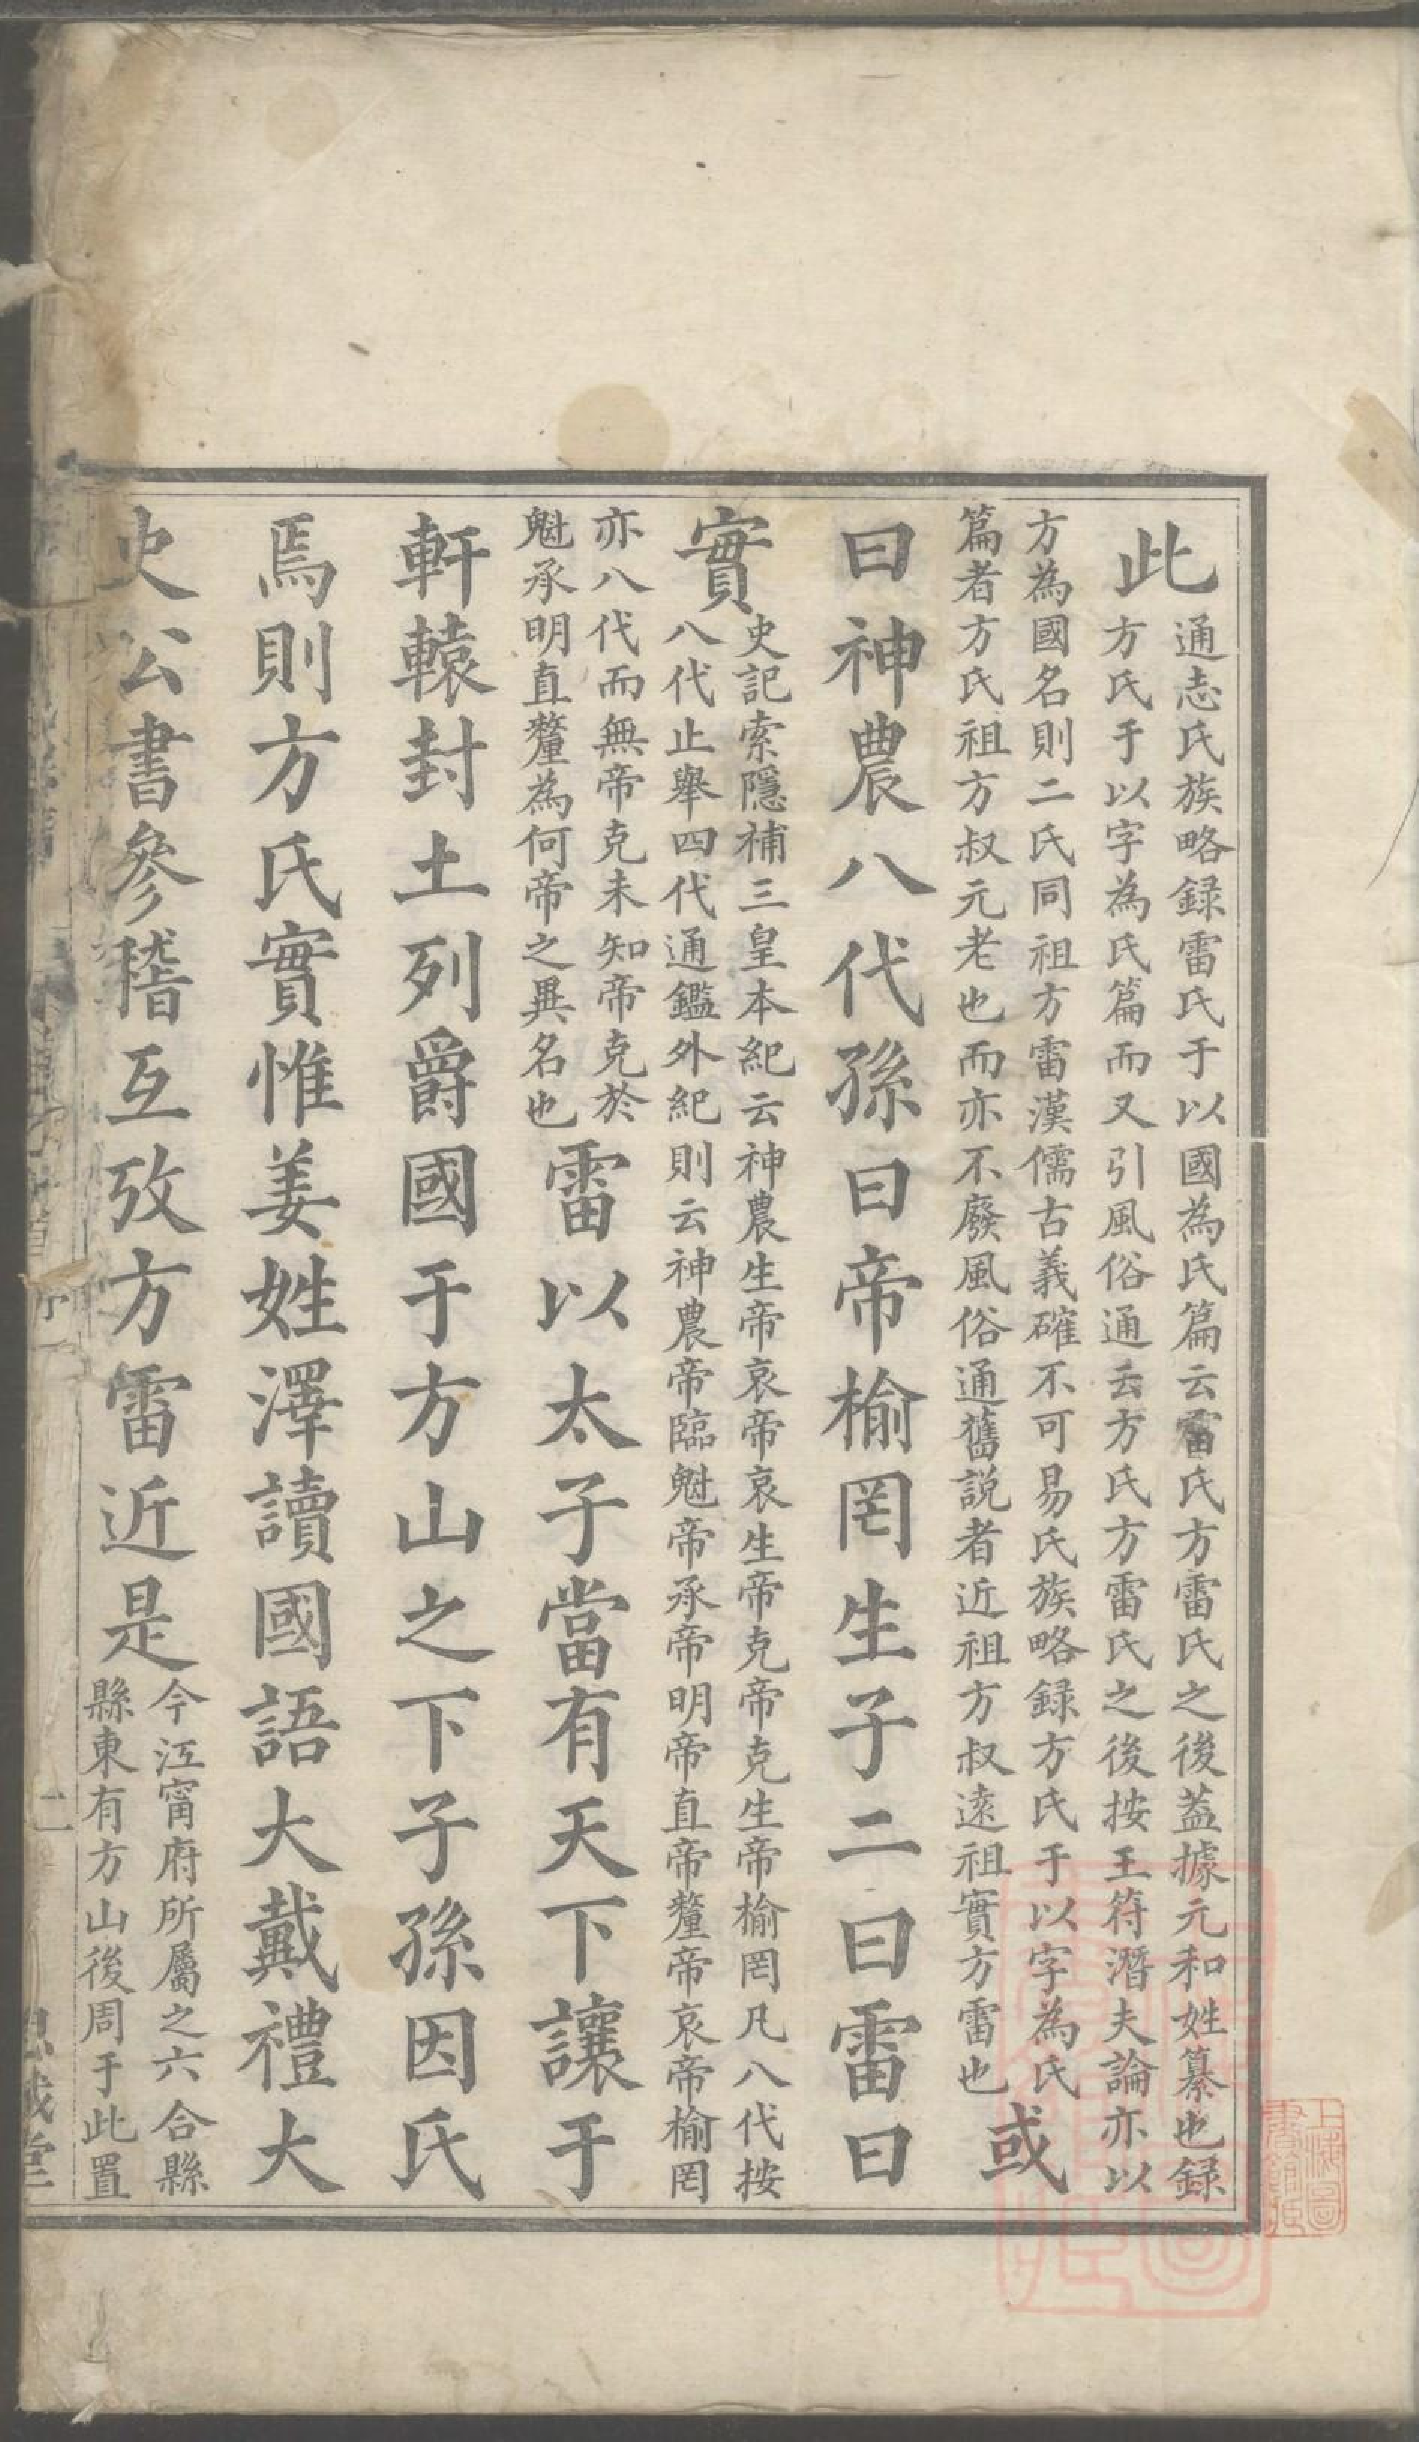 此通志氏族略録雷氏于以國為氏篇云雷氏方雷氏之後蓋據元和姓纂也録
方氏于以字為氏篇而又引風俗通云方氏方雷氏之後按王符潛夫論亦以
方為國名則二氏同祖方雷漢儒古義確不可易氏族略録方氏于以字為氏
篇者方氏祖方叔元老也而亦不廢風俗通舊説者近祖方叔遠祖實方雷也或
曰神農八代孫曰帝榆罔生子二曰雷曰
實史記索隱補三皇本紀云神農生帝哀帝哀生帝克帝克生帝榆罔凡八代按
八代止舉四代通鑑外紀則云神農帝臨魁帝承帝明帝直帝釐帝哀帝榆罔
亦八代而無帝克未知帝克於
魁承明直釐為何帝之異名也雷以太子當有天下讓于
軒轅封土列爵國于方山之下子孫因氏
焉則方氏實惟姜姓澤讀國語大戴禮大
史公書參稽互攷方雷近是今江甯府所屬之六合縣
縣東有方山後周于此置